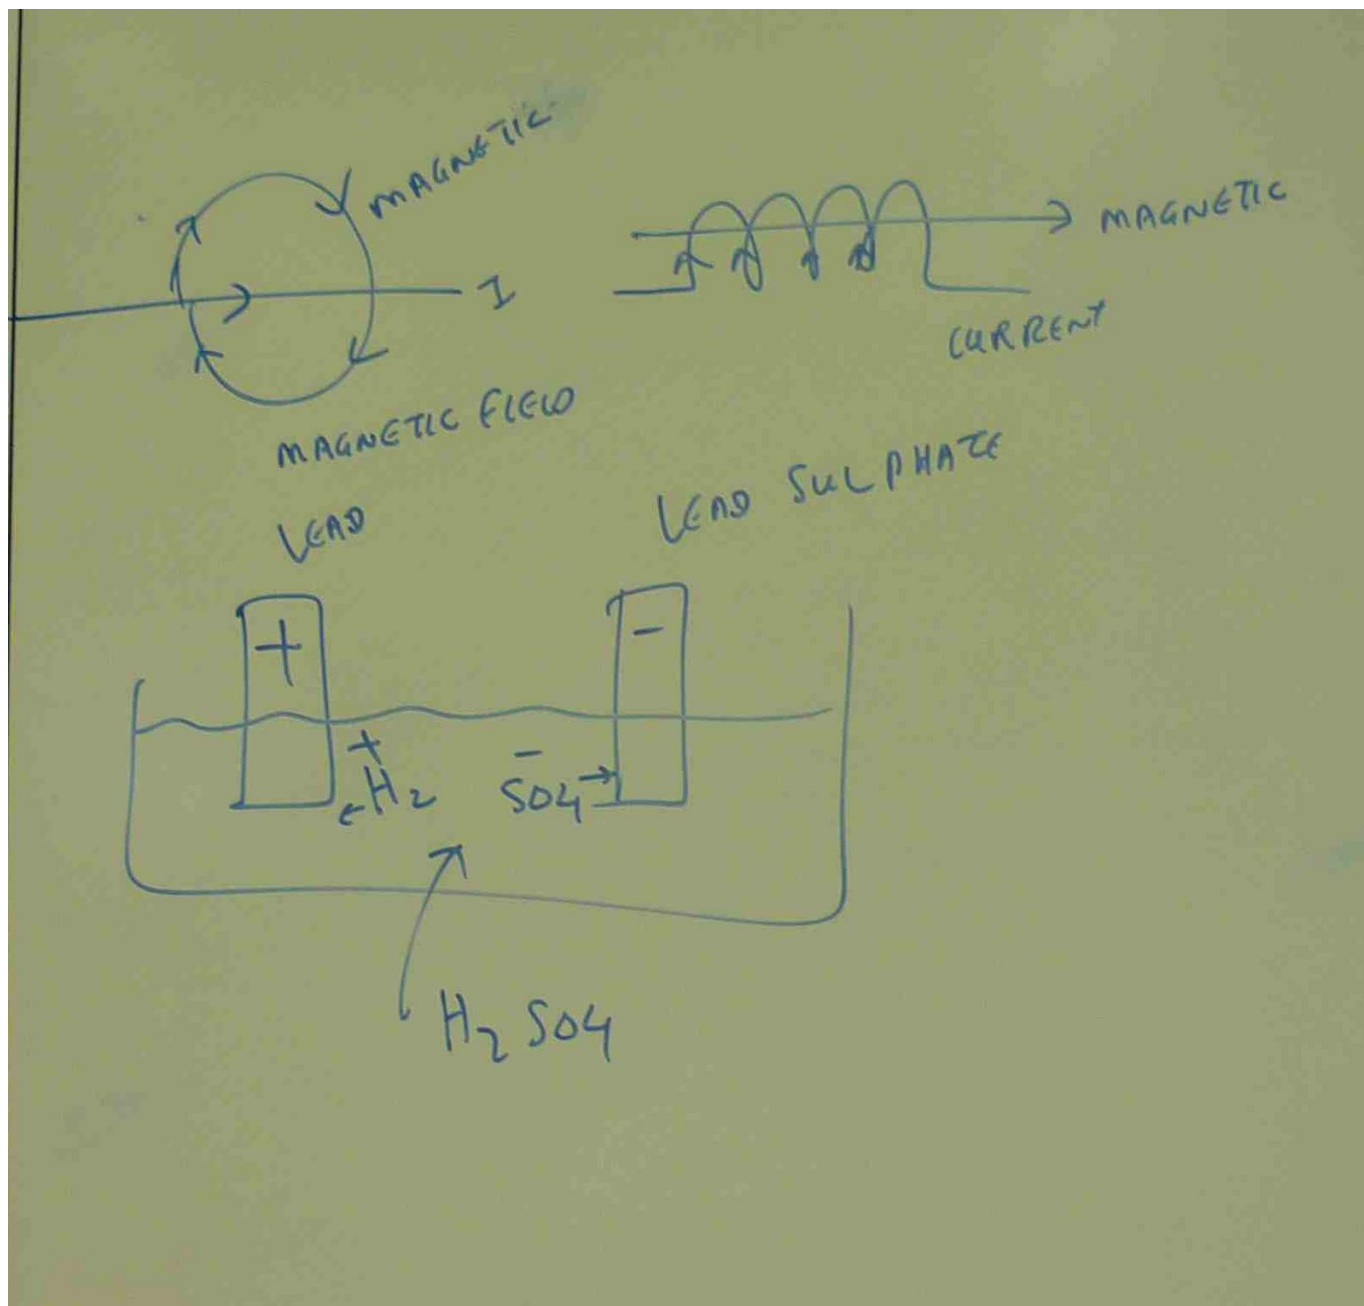 MAGNETIC
MAGNETIC
I
CURRENT
MAGNETIC FIELD
LEAD
LEAD SULPHATE
+
-
+
-
H2
SO4
H2SO4